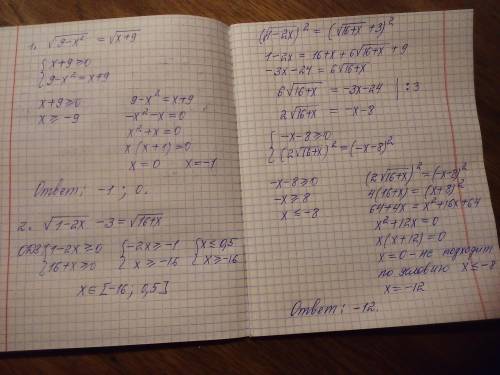 1. √9-x² = √x+9
{ x+9≥0
{ 9-x² = x+9
x+9≥0 9-x² = x+9
x ≥ -9 -x²-x=0
x²+x=0
x(x+1)=0
x=0 x=-1
Ответ: -1; 0.
2. √1-2x -3=√16+x
ОДЗ { 1-2x ≥0 { -2x≥-1 { x≤0,5
{ 16+x≥0 { x≥-16 { x≥-16
x∈[-16; 0,5]
(√1-2x)² = (√16+x +3)²
1-2x = 16+x+6√16+x + 9
-3x-24=6√16+x
6√16+x = -3x-24 | :3
2√16+x = -x-8
{ -x-8≥0
{ (2√16+x)²=(-x-8)²
-x-8≥0 (2√16+x)²=(-x-8)²
-x≥8 4(16+x)=(x+8)²
x≤-8 64+4x=x²+16x+64
x²+12x=0
x(x+12)=0
x=0 - не подходит
по условию x≤-8
x=-12
Ответ: -12.